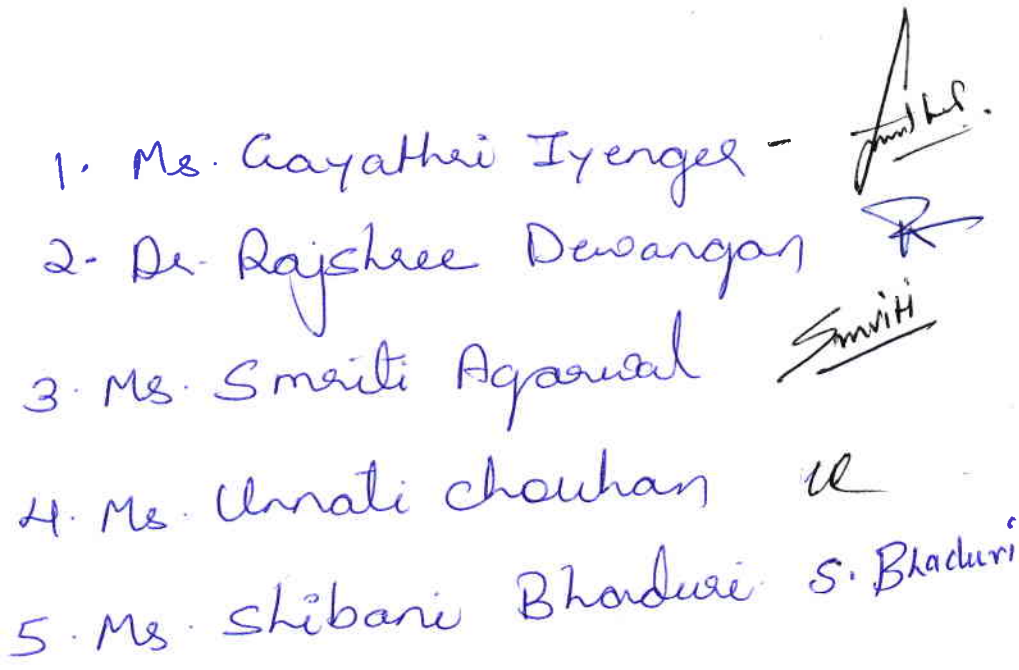 1. Ms. Gayathri Iyenger -
2- Dr. Rajshree Dewangan
3. Ms. Smriti Agarwal Smriti
4. Ms. Unnati Chouhan
5. Ms. Shibani Bhaduri S. Bhaduri